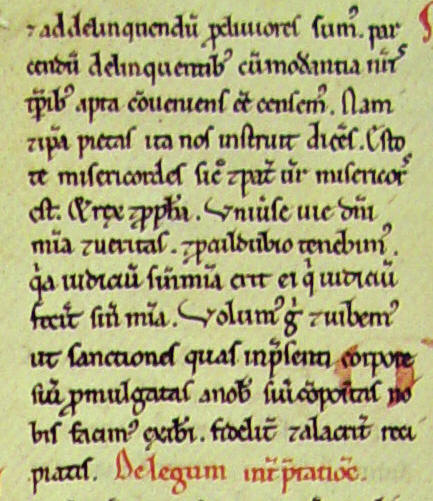 ⁊ ad delinquendū ꝓcliuiores sumꝰ. par
cendū delinquentibꝰ cū modantia nr̄is
tp̄ribꝰ apta cōueniens eē censemꝰ. Nam
⁊ ip̄a pietas ita nos instruit dicēs. Esto
te misericordes sic̄ ⁊ pat̄ ur̄ misericors
est. Et rex ⁊ ꝓph̄a. Uniūse uie dn̄i
mīa ⁊ ueritas. ⁊ ꝓculdubio tenebimꝰ.
q̄a iudiciū sin̄ mīa erit ei qⁱ iudiciū
fecit̄ sin̄ mīa. Volumꝰ gͦ ⁊ iubemꝰ
ut sanctiones quas in p̄senti corpore
siū ꝓmulgatas a nob̄ siū cōpoitas no
bis facimꝰ exib̄i. fidelit̄ ⁊ alacrit̄ reci
piatis. De legum int̄p̄tatiōe.